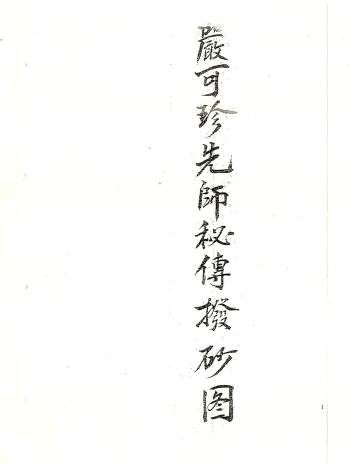 嚴可珍先師秘傳撥砂图